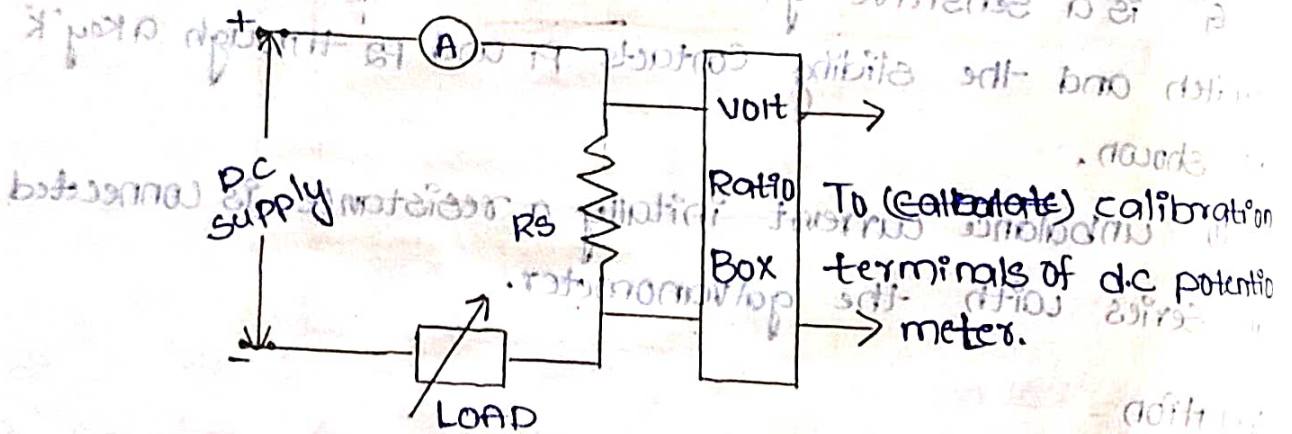 +
A
DC
supply
Rs
-
LOAD
Volt
Ratio
Box
To (calibrate) calibration
terminals of d.c potentio
meter.